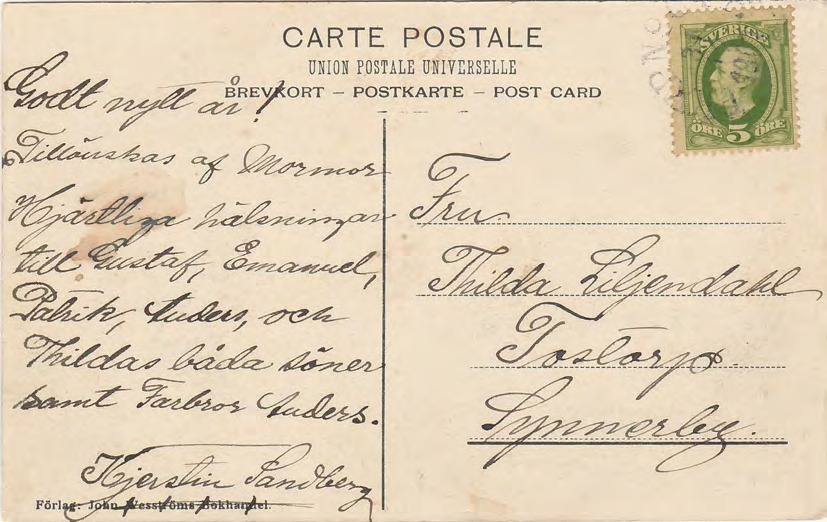 CARTE POSTALE
UNION POSTALE UNIVERSELLE
BREVKORT – POSTKARTE – POST CARD
SVERIGE
ÖRE 5 ÖRE
Godt nytt år!
Tillönskas af Mormor
Hjärtliga hälsningar
till Gustaf, Emanuel,
Patrik, Anders, och
Thildas båda söner
samt Farbror Anders.
Kjerstin Sandberg
Förlag: John Wesströms Bokhandel.
Fru
Thilda Liljendahl
Tostorp.
Synnerby.